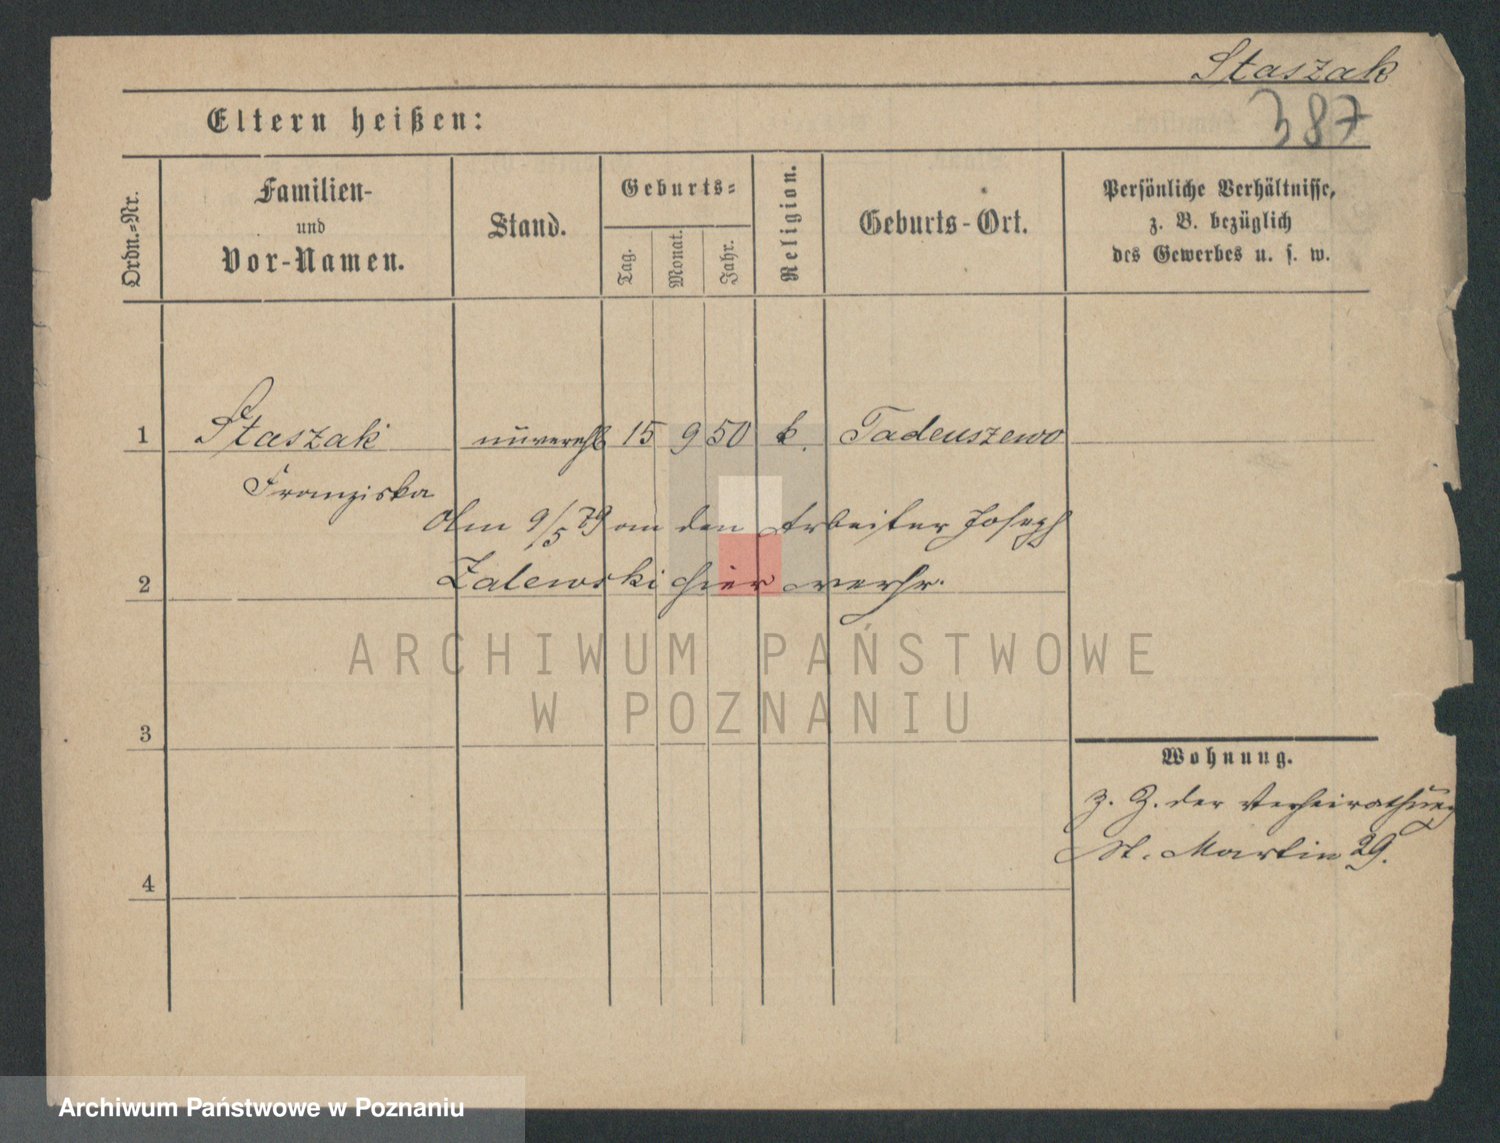 Staszak
387
Eltern heißen:
Ordn.=Nr.
Familien-
und
Vor-Namen.
Stand.
Geburts=
Tag.
Monat.
Jahr.
Religion.
Geburts-Ort.
Persönliche Verhältnisse,
z. B. bezüglich
des Gewerbes u. s. w.
1 Staszak unverehl 15 9 50 k. Tadeuszewo
Franziska
Am 9/5 79 an den Arbeiter Joseph
2 Zalewski hier verhr.
ARCHIWUM PAŃSTWOWE
W POZNANIU
3
Wohnung.
z. Z. der Verheirathung
St. Martin 29.
4
Archiwum Państwowe w Poznaniu